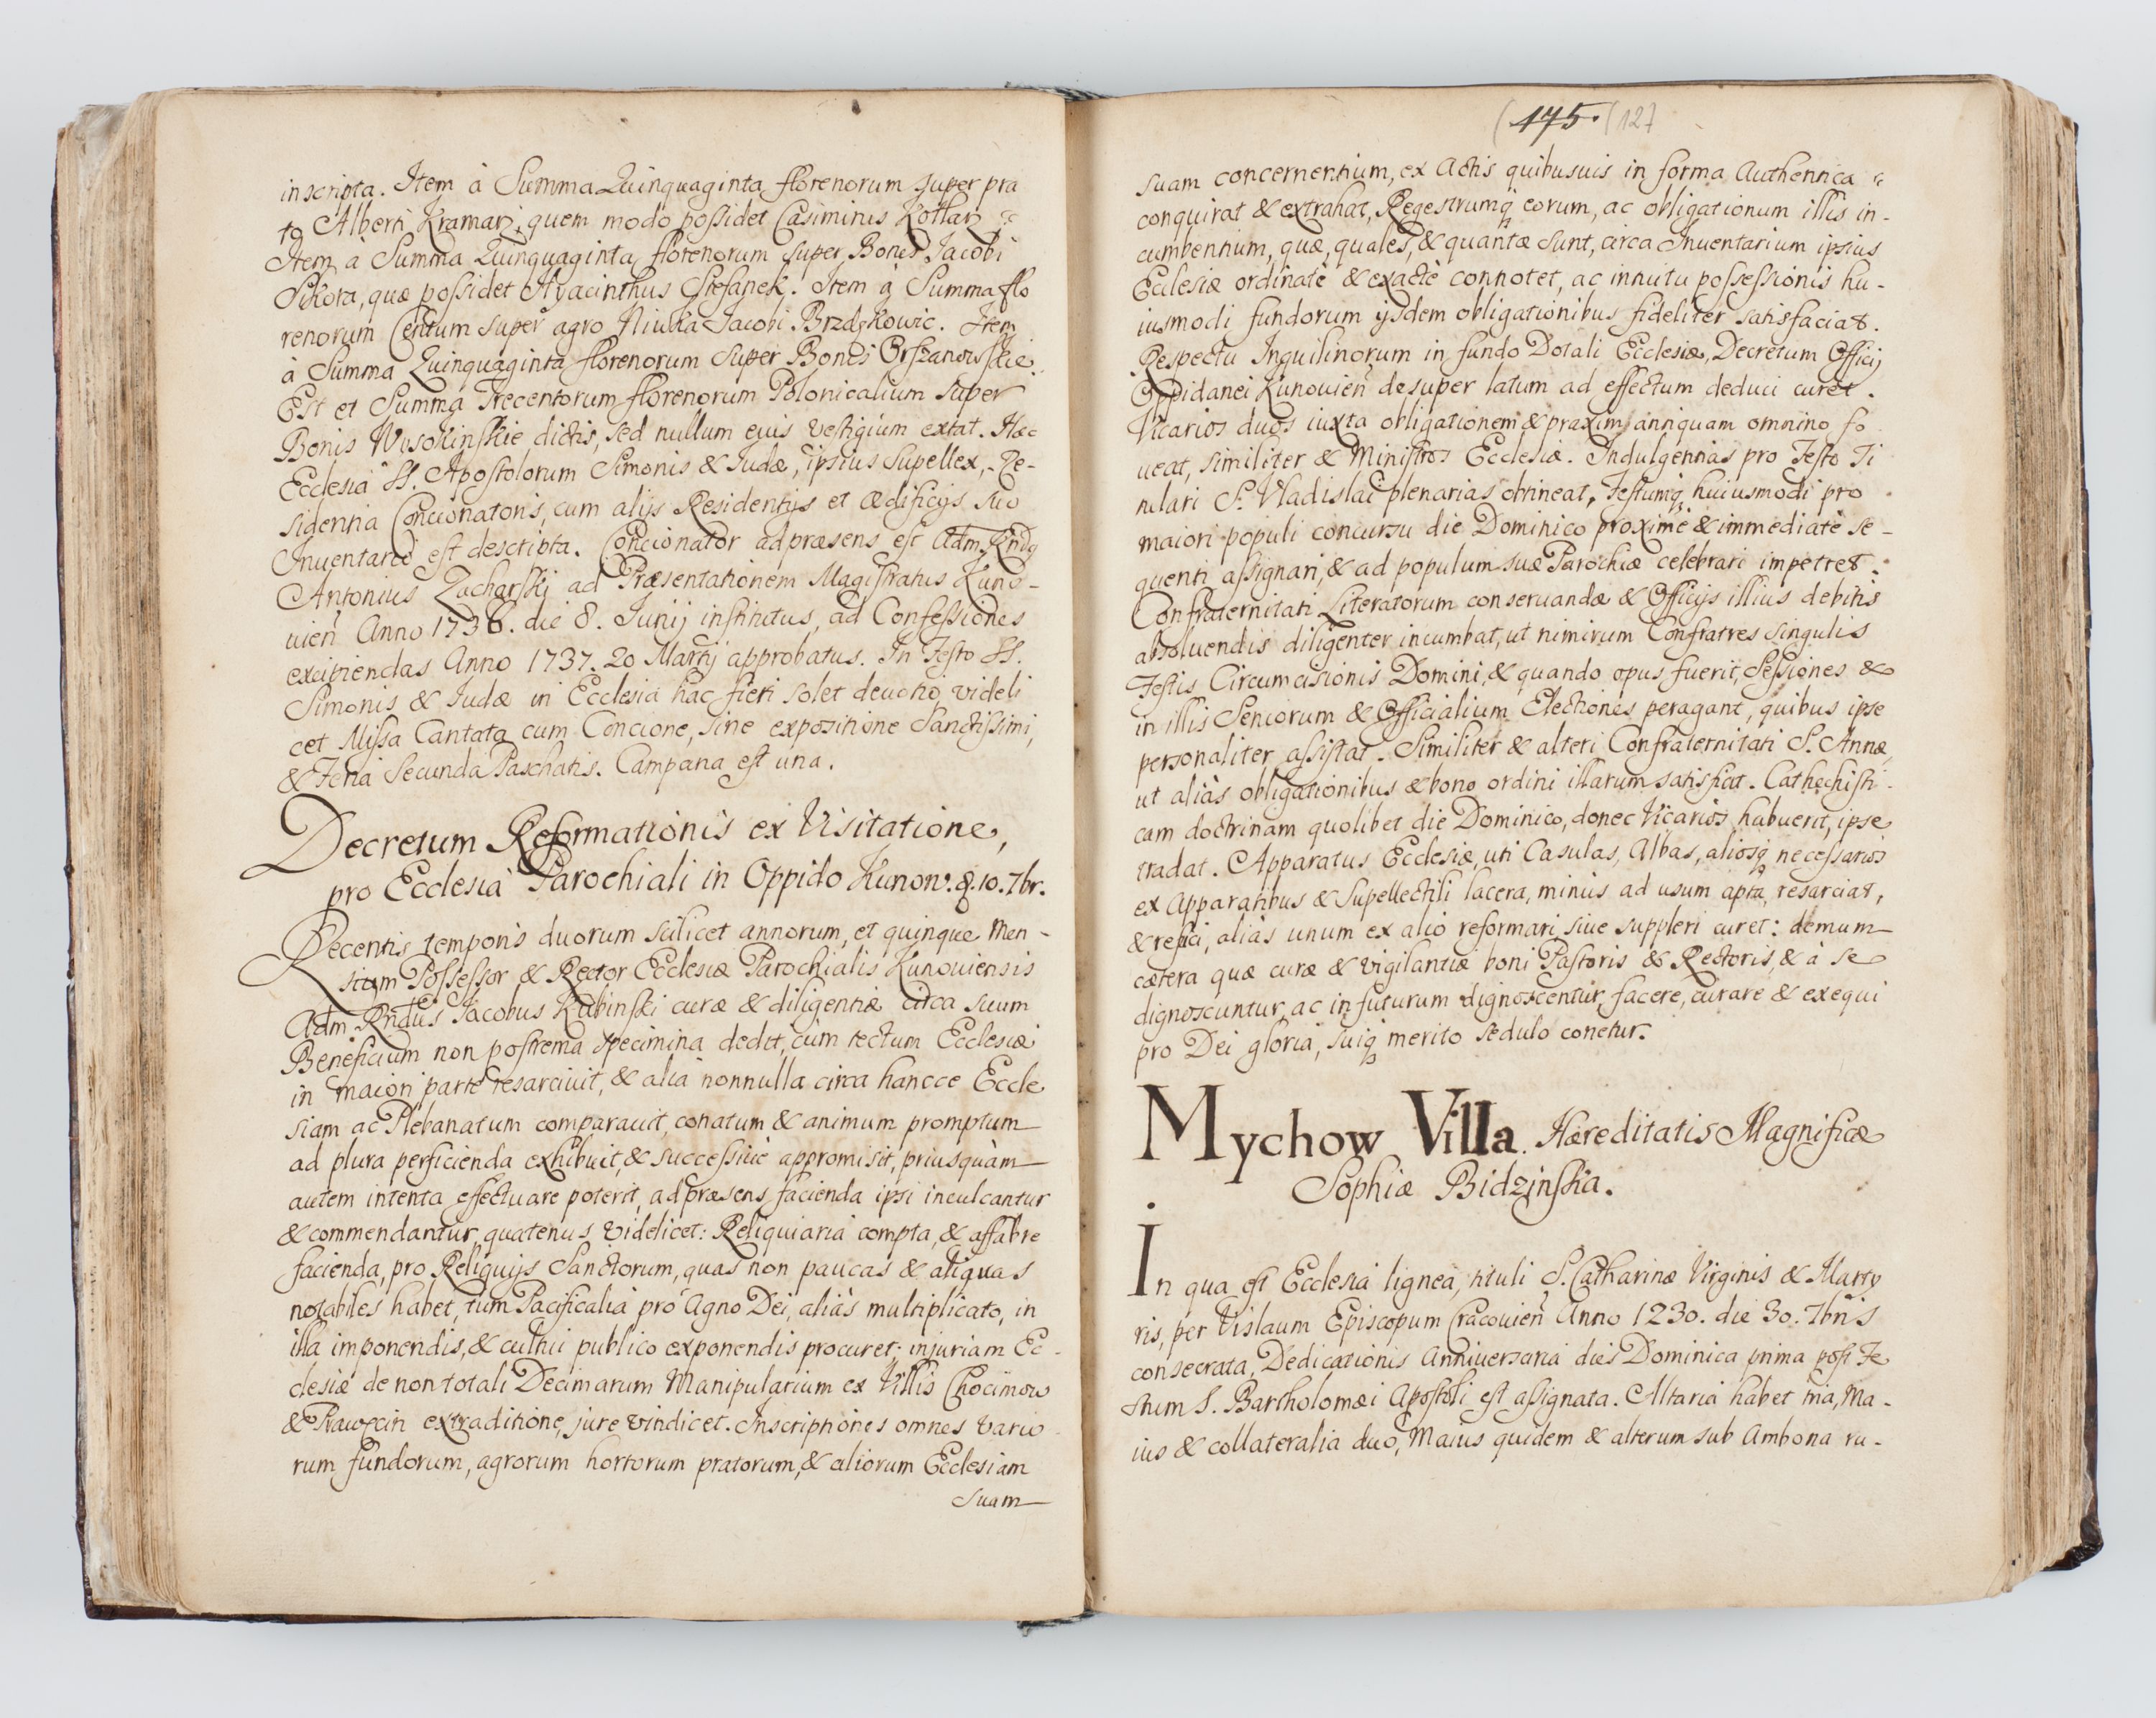 inscripta. Item à Summa Quinquaginta florenorum super pra
to Alberti Kramarz, quem modo possidet Casimirus Kotlarz
Item à Summa Quinquaginta florenorum super Bonis Jacobi
Sikora, quæ possidet Hyacinthus Stefanek. Item à Summa flo
renorum Centum super agro Niwka Jacobi Brzdąkowic. Item
à Summa Quinquaginta florenorum super Bonis Orszanowskie.
Est et Summa Trecentorum florenorum Polonicalium super
Bonis Wysokinskie dictis, sed nullum eius vestigium extat. Hæc
Ecclesia SS. Apostolorum Simonis & Judæ, ipsius Supellex, Re-
sidentia Concionatoris, cum alijs Residentijs et ædificijs suo
Inuentario est descripta. Concionator ad præsens est Adm. Rndg
Antonius Zacharski ad Præsentationem Magistratus Kuno-
uien Anno 1736. die 8. Junij institutus, ad Confessiones
excipiendas Anno 1737. 20 Martij approbatus. In Festo SS.
Simonis & Judæ in Ecclesia hac fieri solet deuotio, videli
cet Missa Cantata cum Concione, sine expositione Sanctissimi,
& Feria Secunda Paschatis. Campana est una.
Decretum Reformationis ex Visitatione,
pro Ecclesia Parochiali in Oppido Kunow. d. 10. 7br.
Recentis temporis duorum scilicet annorum, et quinque Men-
sium Possessor & Rector Ecclesiæ Parochialis Kunouiensis
Adm. Rndus Jacobus Kubinski curæ & diligentiæ circa suum
Beneficium non postrema specimina dedit, cum tectum Ecclesiæ
in maiori parte resarciuit, & alia nonnulla circa hancce Eccle
siam ac Plebanatum comparauit, conatum & animum promptum
ad plura perficienda exhibuit, & successiuè appromisit, priusquàm
autem intenta effectuare poterit, ad præsens facienda ipsi inculcantur
& commendantur, quatenus videlicet: Reliquiaria compta, & affabre
facienda, pro Reliquijs Sanctorum, quas non paucas & aliquas
notabiles habet, tum Pacificalia pro Agno Dei, aliàs multiplicato, in
illa imponendis, & cultui publico exponendis procuret; injuriam Ec-
clesiæ de non totali Decimarum Manipularium ex Villis Chocimow
& Prawęcin extraditione, jure vindicet. Inscriptiones omnes vario
rum fundorum, agrorum hortorum pratorum, & aliorum Ecclesiam
suam
(175. (127
suam concernentium, ex Actis quibusuis in forma Authentica
conquirat & extrahat, Regestrumq eorum, ac obligationum illis in-
cumbentium, quæ, quales, & quantæ sunt, circa Inuentarium ipsius
Ecclesiæ ordinatè & exactè connotet, ac innuitu possessionis hu-
iusmodi fundorum ijsdem obligationibus fideliter satisfaciat.
Respectu Inquilinorum in fundo Dotali Ecclesiæ, Decretum Officij
Oppidanei Kunouien desuper latum ad effectum deduci curet.
Vicarios duos iuxta obligationem & praxim antiquam omnino fo
ueat, similiter & Ministros Ecclesiæ. Indulgentias pro Festo Ti
tulari S. Vladislai plenarias obtineat, Festumq huiusmodi pro
maiori populi concursu die Dominico proximè & immediatè se-
quenti assignari, & ad populum suæ Parochiæ celebrari impetret.
Confraternitati Literatorum conseruandæ & Officijs illius debitis
absoluendis diligenter incumbat, ut nimirum Confratres singulis
Festis Circumcisionis Domini, & quando opus fuerit, Sessiones &
in illis Seniorum & Officialium Electiones peragant, quibus ipse
personaliter assistat. Similiter & alteri Confraternitati S. Annæ,
ut aliàs obligationibus & bono ordini illarum satisfiat. Cathechisti-
cam doctrinam quolibet die Dominico, donec Vicarios habuerit, ipse
tradat. Apparatus Ecclesiæ, uti Casulas, Albas, aliosq necessarios
ex Apparatibus & Supellectili lacera, minùs ad usum apta, resarciat,
& refici, aliàs unum ex alio reformari, siue suppleri curet: demum
cætera quæ curæ & vigilantiæ boni Pastoris & Rectoris, & à se
dignoscuntur, ac in futurum dignoscentur, facere, curare & exequi
pro Dei gloria, suiq merito sedulo conetur.
Mychow Villa. Hæreditatis Magnificæ
Sophiæ Bidzinska.
In qua est Ecclesia lignea, tituli S. Catharinæ Virginis & Marty
ris, per Vislaum Episcopum Cracouien Anno 1230. die 30. 7bris
consecrata, Dedicationis Anniuersaria dies Dominica prima post Fe
stum S. Bartholomæi Apostoli est assignata. Altaria habet tria, Ma-
ius & collateralia duo, Maius quidem & alterum sub Ambona ru-